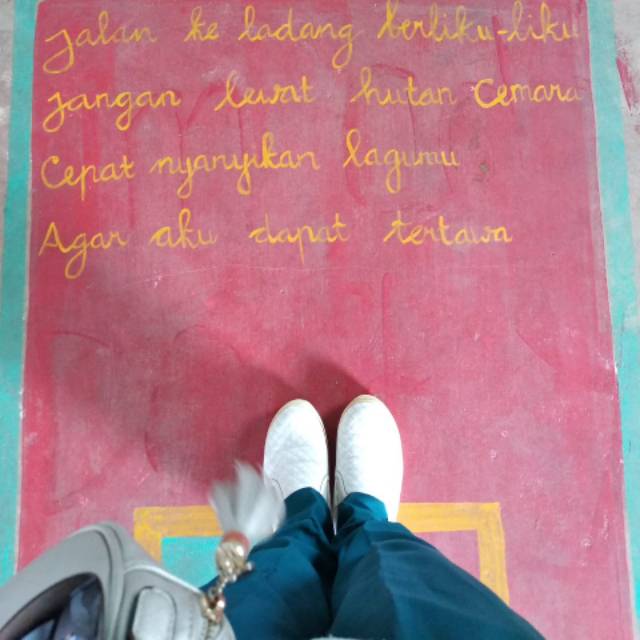 jalan ke ladang berliku-liku
jangan lewat hutan Cemara
Cepat nyanyikan lagumu
Agar aku dapat tertawa